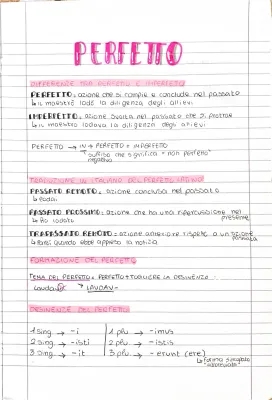 PERFETTO
DIFFERENZE TRA PERFETTO E IMPERFETTO
PERFETTO: azione che si compie e conclude nel passato
↳ il maestro lodò la diligenza degli allievi
IMPERFETTO: azione svolta nel passato che si protrae
↳ il maestro lodava la diligenza degli allievi
PERFETTO → IN + PERFETTO = IMPERFETTO
↳ suffisso che significa "non perfetto"
negativo
TRADUZIONE IN ITALIANO DEL PERFETTO LATINO
PASSATO REMOTO: azione conclusa nel passato
↳ lodai
PASSATO PROSSIMO: azione che ha una ripercussione nel
presente
↳ ho lodato
TRAPASSATO REMOTO: azione anteriore rispetto a un'azione
passata
↳ quando ebbe appreso la notizia
FORMAZIONE DEL PERFETTO
TEMA DEL PERFETTO: PERFETTO + TOGLIERE LA DESINENZA
→ LAUDAV-
DESINENZE DEL PERFETTO
1 sing → -i
1 plu → -imus
2 sing → -isti
2 plu → -istis
3 sing → -it
3 plu → -erunt (ere)
↳ forma